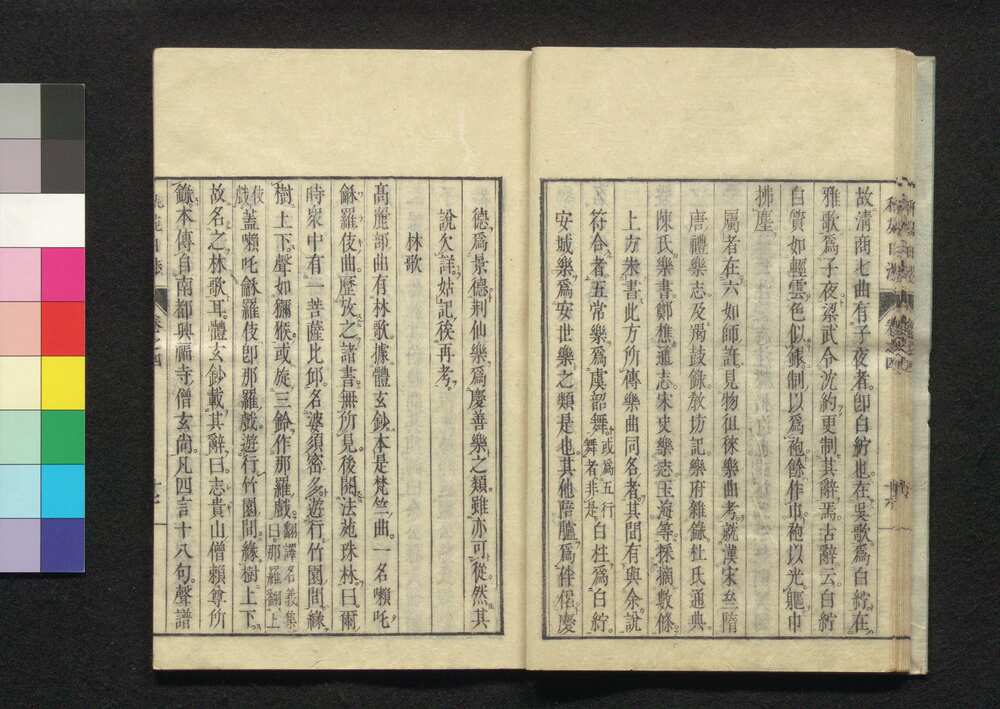 故清商七曲有子夜者即白紵也在吳歌爲白紵在
雅歌爲子夜梁武令沈約更制其辭焉古辭云白紵
白質如輕雲色似銀制以爲袍餘作巾袍以光軀巾
拂塵
屬者在六如師許見物徂徠樂曲考就漢宋至隋
唐禮樂志及羯鼓錄敎坊記樂府雜錄杜氏通典
陳氏樂書鄭樵通志宋史樂志玉海等採摘數條
上方朱書此方所傳樂曲同名者其間有與余說
符合者五常樂爲虞韶舞或爲五行舞者非是白柱爲白紵
安城樂爲安世樂之類是也其他陪臚爲伴侶慶
德爲景德荆仙樂爲慶善樂之類雖亦可從然其
說欠詳姑記後再考
林歌
高麗部曲有林歌據體玄鈔本是梵竺曲一名嬾吒
龢羅伎曲歷攷之諸書無所見後閱法苑珠林曰爾
時衆中有一菩薩比丘名婆須密多遊行竹園間緣
樹上下聲如獼猴或旋三鈴作那羅戲翻譯名義集曰那羅翻上
伎戲蓋嬾吒龢羅伎卽那羅戲遊行竹園間緣樹上下
故名之林歌耳體玄鈔載其辭曰志貴山僧賴尊所
錄本傳自南都興福寺僧玄尙凡四言十八句聲譜